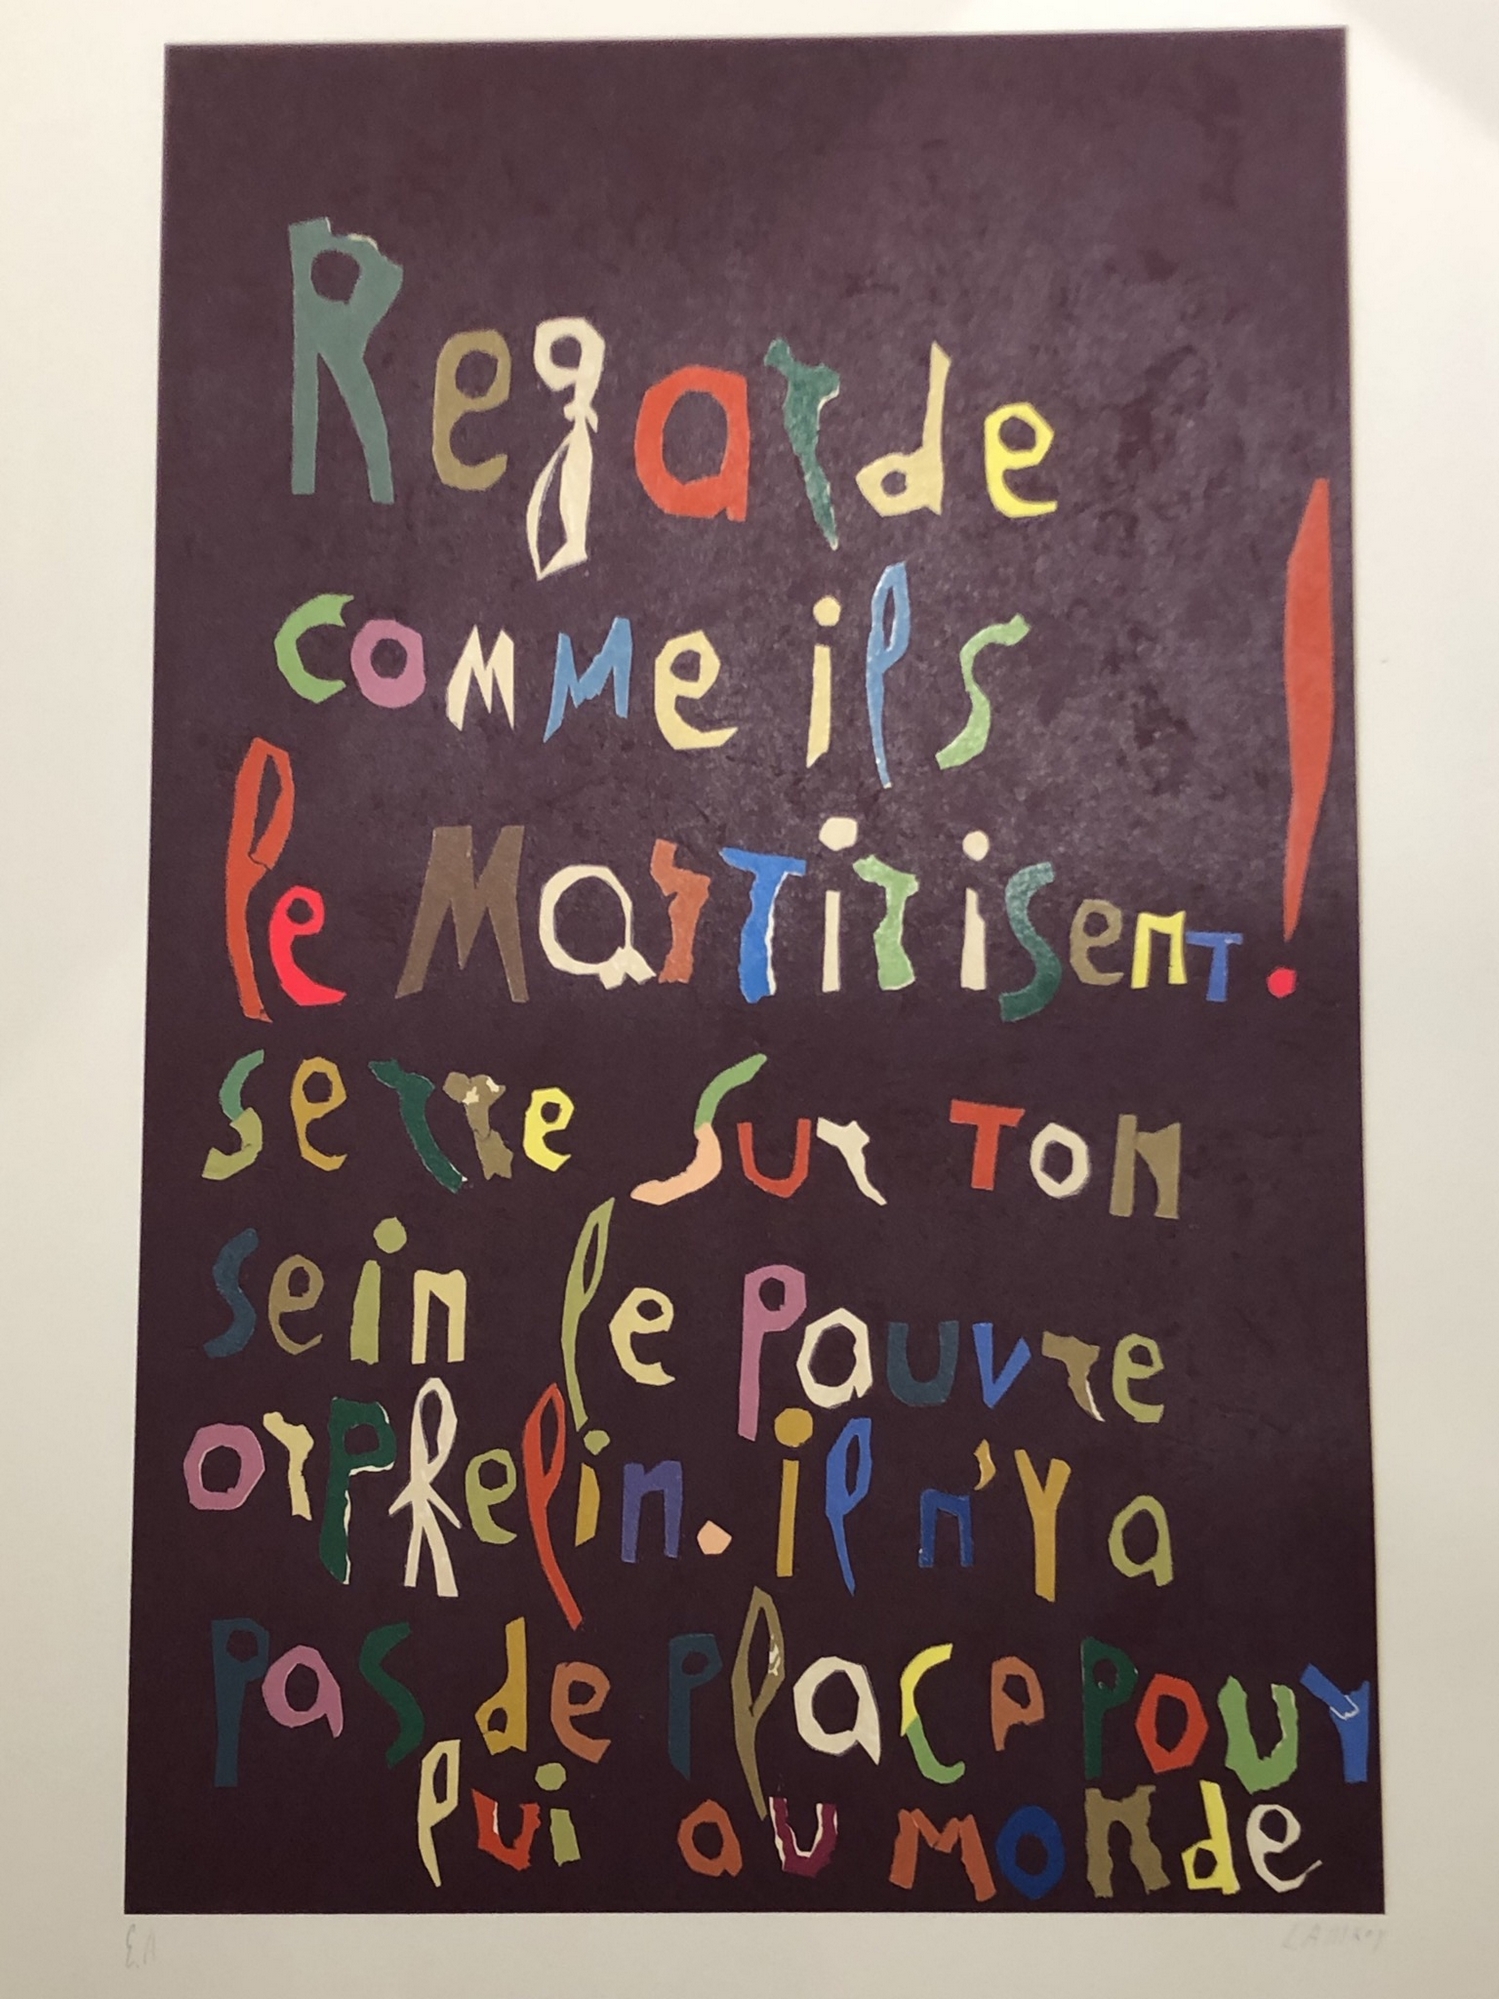 Regarde
comme ils
le Martirisent!
serre sur ton
sein le pauvre
orphelin. il n'y a
pas de place pour
lui au monde
EA
LANSKOY